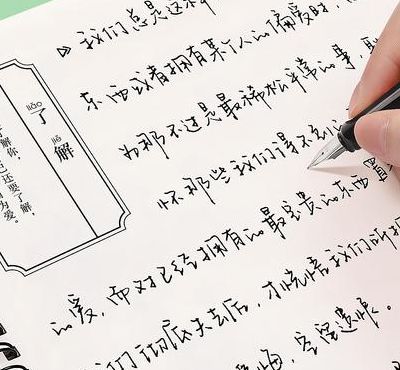 我们总是这样
东西或者拥有某个人的偏爱时，
为那不过是最稀松平常的事，
怀那些我们得不到
的爱，而对已经拥有的最宝贵的东西
我们彻底失去后，才恍悟我们所拥
悔，空留遗憾。
liǎo
了
jiě
解
了解你，
还要了解，
为爱。